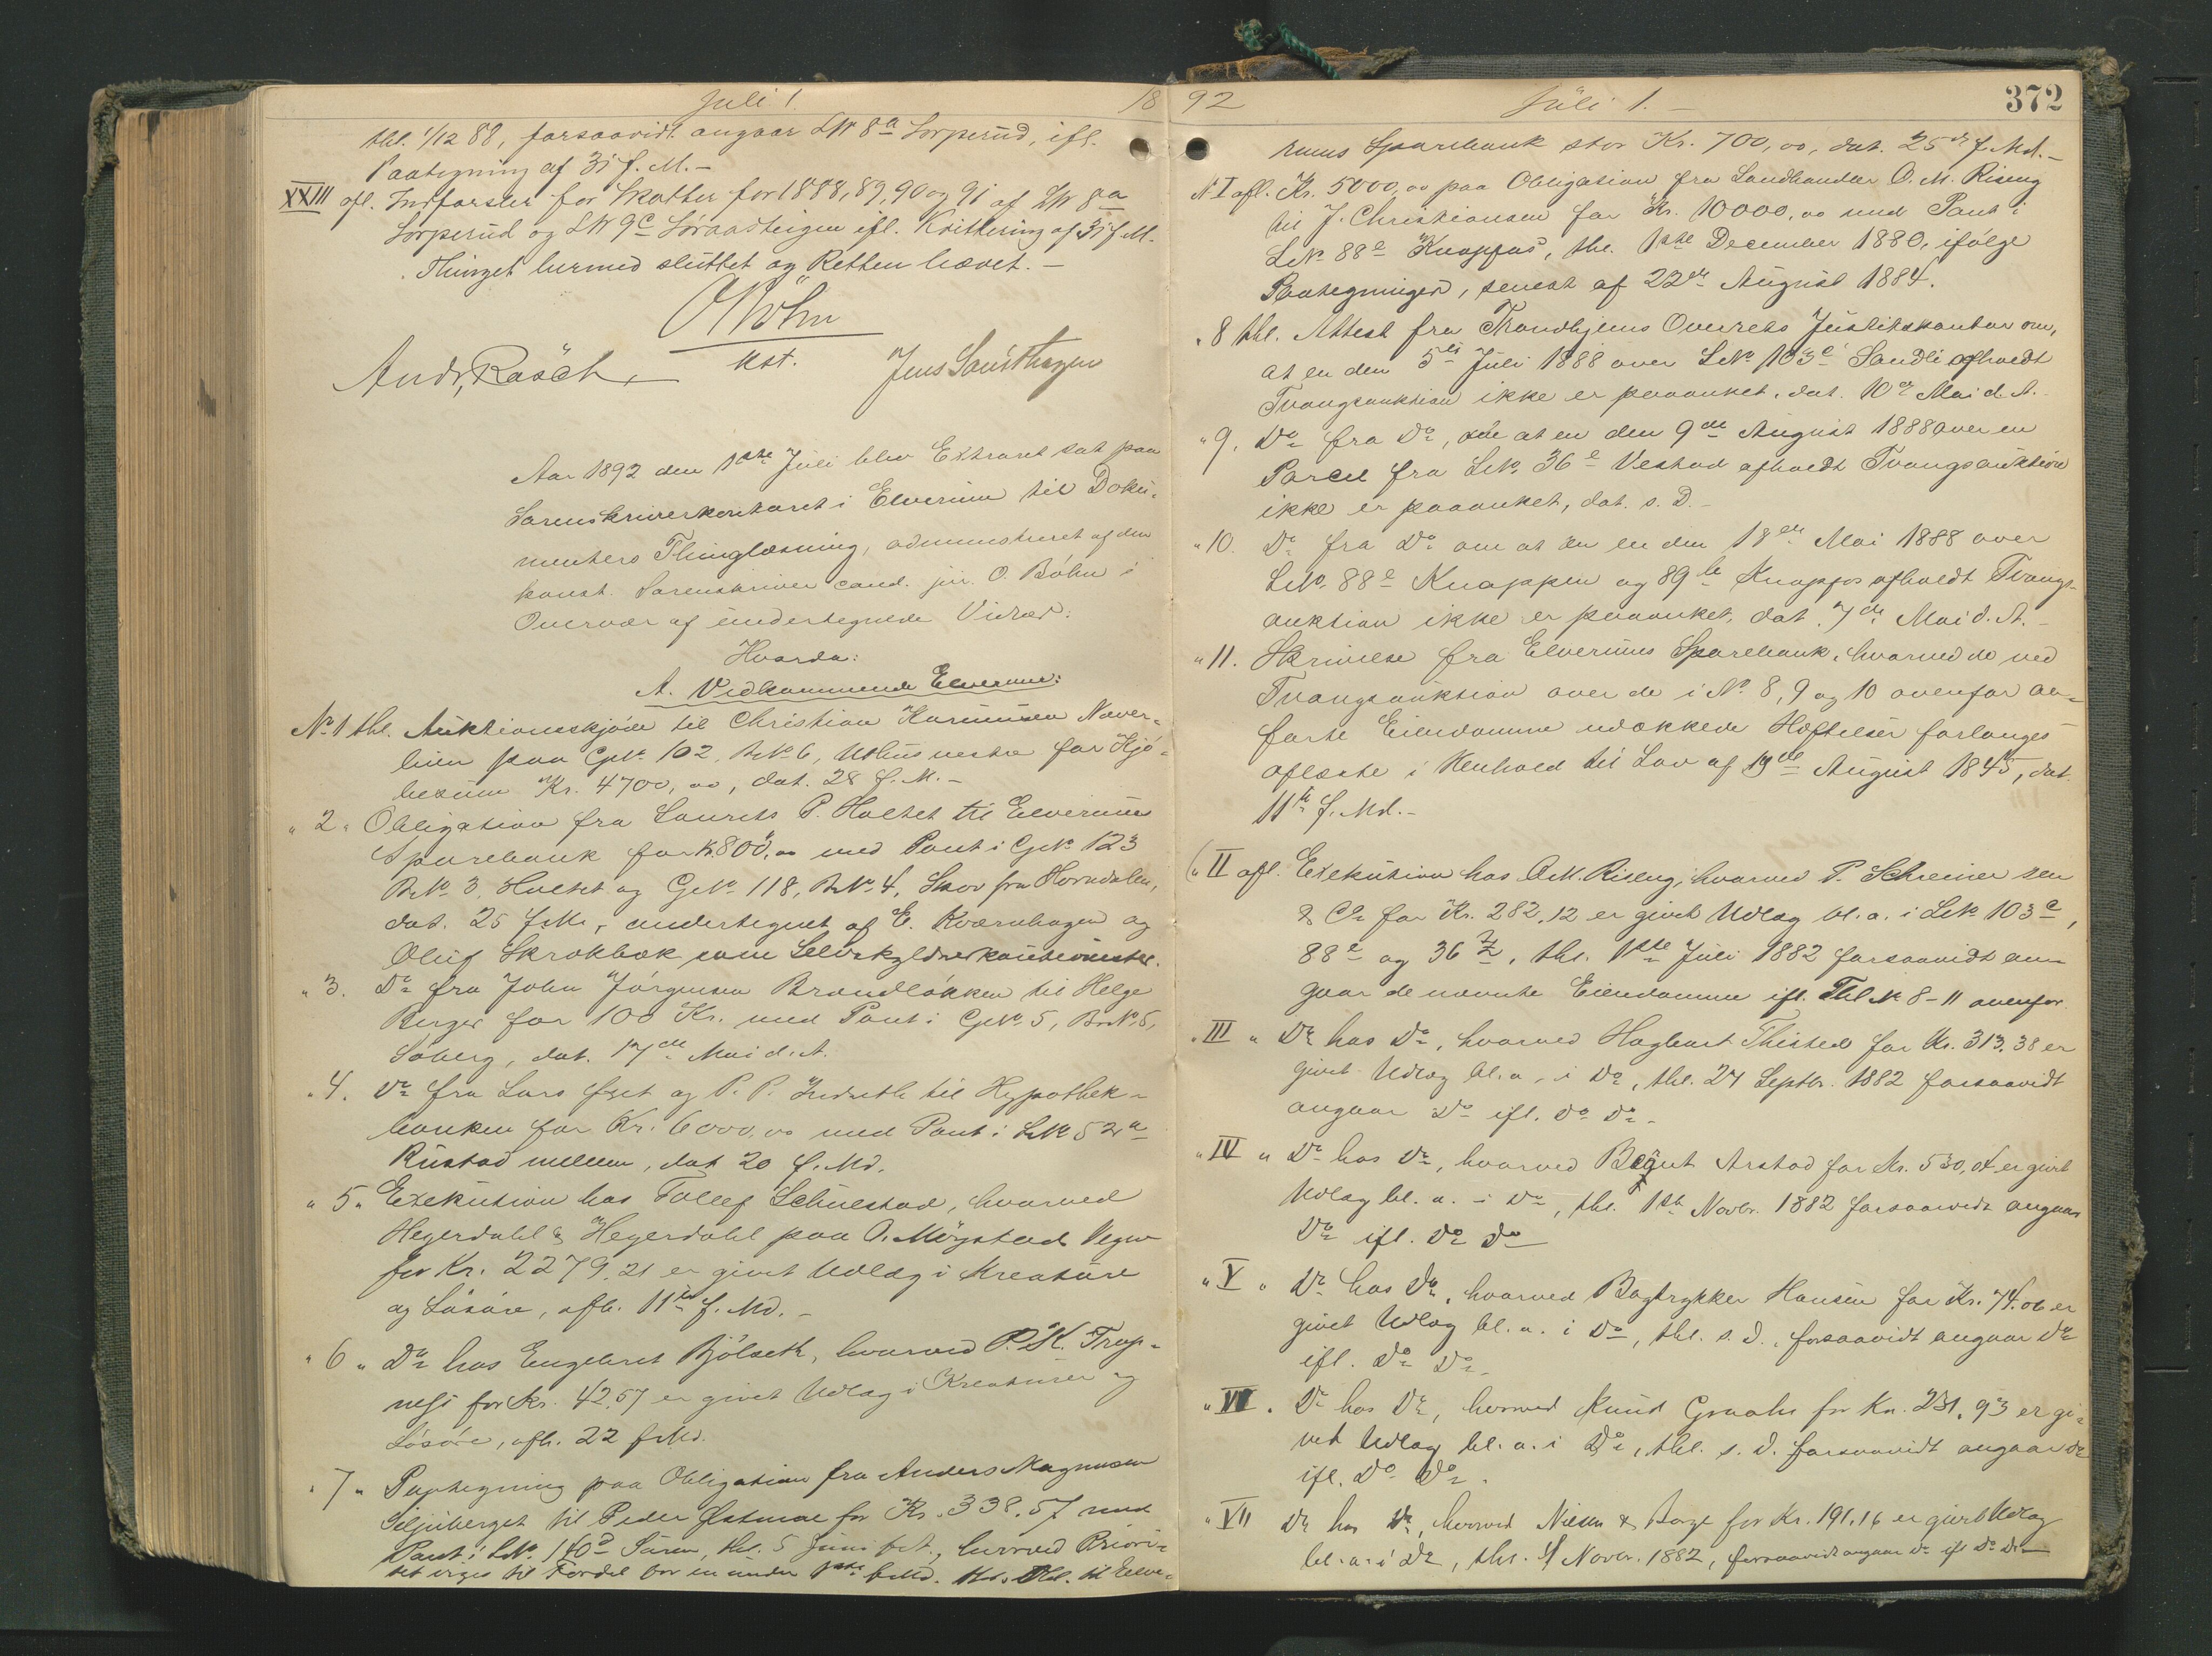 Juli 1. 18
thl. 1/12 88, forsaavidt angaar LN 8a Sorperud, ifl.
Paategning af 31 f. M. –
XXIII afl. Indførsler for Skatter for 1888, 89, 90 og 91 af LN 8a
Sorperud og LN 9c Soraasteigen ifl. Kvittering af 31 f. M.
Thinget hermed sluttet og Retten hævet. –
O Bøhn
kst.
Andr. Rasch, Jens Sausthagen
Aar 1892 den 1ste Juli blev Extraret sat paa
Sorenskriverkontoret i Elverum til Doku-
menters Thinglæsning, administreret af den
konst. Sorenskriver cand. jur. O. Bøhn i
Overvær af undertegnede Vidner:
Hvorda:
A. Vedkommende Elverum:
No 1 thl. Auktionsskjøde til Christian Nover-
lien paa GNo 102, BNo 6, vestre for Kjø-
besum Kr. 4700,00, dat. 28 f. M. –
" 2 " Obligation fra Laurits P. Holtet til Elverums
Sparebank for Kr. 800,00 med Pant i GNo 123
BNo 3, Holtet og GNo 118, BNo 4, Skov fra Horndalen,
dat. 25 f. M., undertegnet af E. Kværnhagen og
Oluf Skrokbæk som Selvskyldnerkautionister.
" 3. Do fra John Jørgensen Brændløkken til Helge
Berger for 100 Kr. med Pant i GNo 5, BNo 5,
Søberg, dat. 17de Mai d. A.
" 4. Do fra Lars og P. P. til Hypothek-
banken for Kr. 6000,00 med Pant i LNo 52a
Rustad mellem, dat. 20 f. Md.
" 5 " Exekution hos Tollef Schulstad, hvorved
Hegerdahl & Hegerdahl paa O. Vegne
for Kr. 2279,21 er givet Udlæg i Kreature
og Løsøre, afh. 11te f. Md. –
" 6 " Do hos Engebret Bjølseth, hvorved P. K. Trop-
for Kr. 42,57 er givet Udlæg i Kreaturer og
Løsøre, afh. 22 f. Md.
" 7 " Paategning paa Obligation fra Anders Magnussen
Siljuberget til Peder Østmoe for Kr. 338,57 med
Pant i LNo 140d Søren, thl. 5 Juni, hvorved Priori-
tet viges til Fordel for en under 1ste f. Md. thl. til Elve-
92 Juli 1. – 372
rums Sparebank stor Kr. 700,00, dat. 25de f. Md. –
No I afl. Kr. 5000,00 paa Obligation fra Landhandler O. M. Riseng
til J. Christiansen for Kr. 10000,00 med Pant i
LNo 88e Knappos, thl. 1ste December 1880, ifølge
Paategninger, senest af 22de August 1884.
" 8 thl. Attest fra Trondhjems Overrets Justitskontor om,
at en den 5te Juli 1888 over LNo 103c Sandli afholdt
Tvangsauktion ikke er paaanket, dat. 10de Mai d. A.
" 9. Do fra Do, om at en den 9de August 1888 over en
Parcel fra LNo 36e Vestad afholdt Tvangsauktion
ikke er paaanket, dat. s. D. –
" 10. Do fra Do om at en den 18de Mai 1888 over
LNo 88e Knappen og 89b Knappos afholdt Tvangs-
auktion ikke er paaanket, dat. 7de Mai d. A. –
" 11. Skrivelse fra Elverums Sparebank, hvorved de ved
Tvangsauktion over de i No 8, 9 og 10 ovenfor an-
førte Eiendomme udækkede Hæftelser forlanges
aflæste i Henhold til Lov af 19de August 1845, dat.
11te f. Md. –
" II afl. Exekution hos O. M. Riseng, hvorved P. Schreiner sen
& Co for Kr. 282,12 er givet Udlæg bl. a. i LNo 103c,
88e og 36, thl. 1ste Juli 1882 forsaavidt an-
gaar de nævnte Eiendomme ifl. Thl. No 8–11 ovenfor.
" III " Do hos Do, hvorved Hagbart Thisted for Kr. 313,38 er
givet Udlæg bl. a. i Do, thl. 27 Septbr. 1882 forsaavidt
angaar Do ifl. Do Do –
" IV " Do hos Do, hvorved Arstad for Kr. 530,04 er givet
Udlæg bl. a. i Do, thl. 1ste Novbr. 1882 forsaavidt angaar
Do ifl. Do Do
" V " Do hos Do, hvorved Bogtrykker Hansen for Kr. 74,06 er
givet Udlæg bl. a. i Do, thl. s. D., forsaavidt angaar Do
ifl. Do Do –
" VI " Do hos Do, hvorved Knud Graahe for Kr. 231,93 er gi-
vet Udlæg bl. a. i Do, thl. s. D. forsaavidt angaar Do
ifl. Do Do.
" VII Do hos Do, hvorved Nielsen & for Kr. 191,16 er givet Udlæg
bl. a. i Do, thl. 4 Novbr. 1882, forsaavidt angaar Do ifl. Do Do –